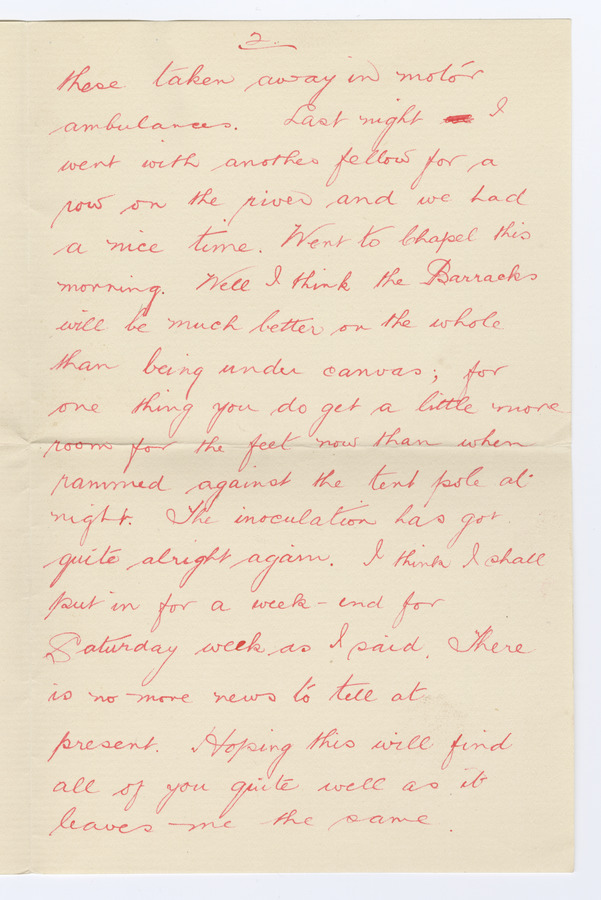 2.
these taken away in motor
ambulances. Last night I
went with another fellow for a
row on the river and we had
a nice time. Went to Chapel this
morning. Well I think the Barracks
will be much better on the whole
than being under canvas; for
one thing you do get a little more
room for the feet now than when
rammed against the tent pole at
night. The inoculation has got
quite alright again. I think I shall
put in for a week-end for
Saturday week as I said. There
is no more news to tell at
present. Hoping this will find
all of you quite well as it
leaves me the same.